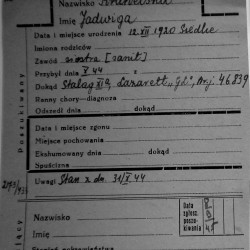 Nazwisko
Imię Jadwiga
Data i miejsce urodzenia 12 XII 1920 Siedlce
Imiona rodziców
Zawód siostra [sanit]
Przybył dnia X 44
Dokąd Stalag XI B, Lazarett
Ranny chory—diagnoza
Odszedł dnia dokąd
Poszukiwany
Data i miejsce zgonu
Miejsce pochowania
Ekshumowany dnia dokąd
Spuścizna
Uwagi Stan z dn. 31/X 44
Nazwisko
Imię
Data
zgłosz.
poszu-
kiwania